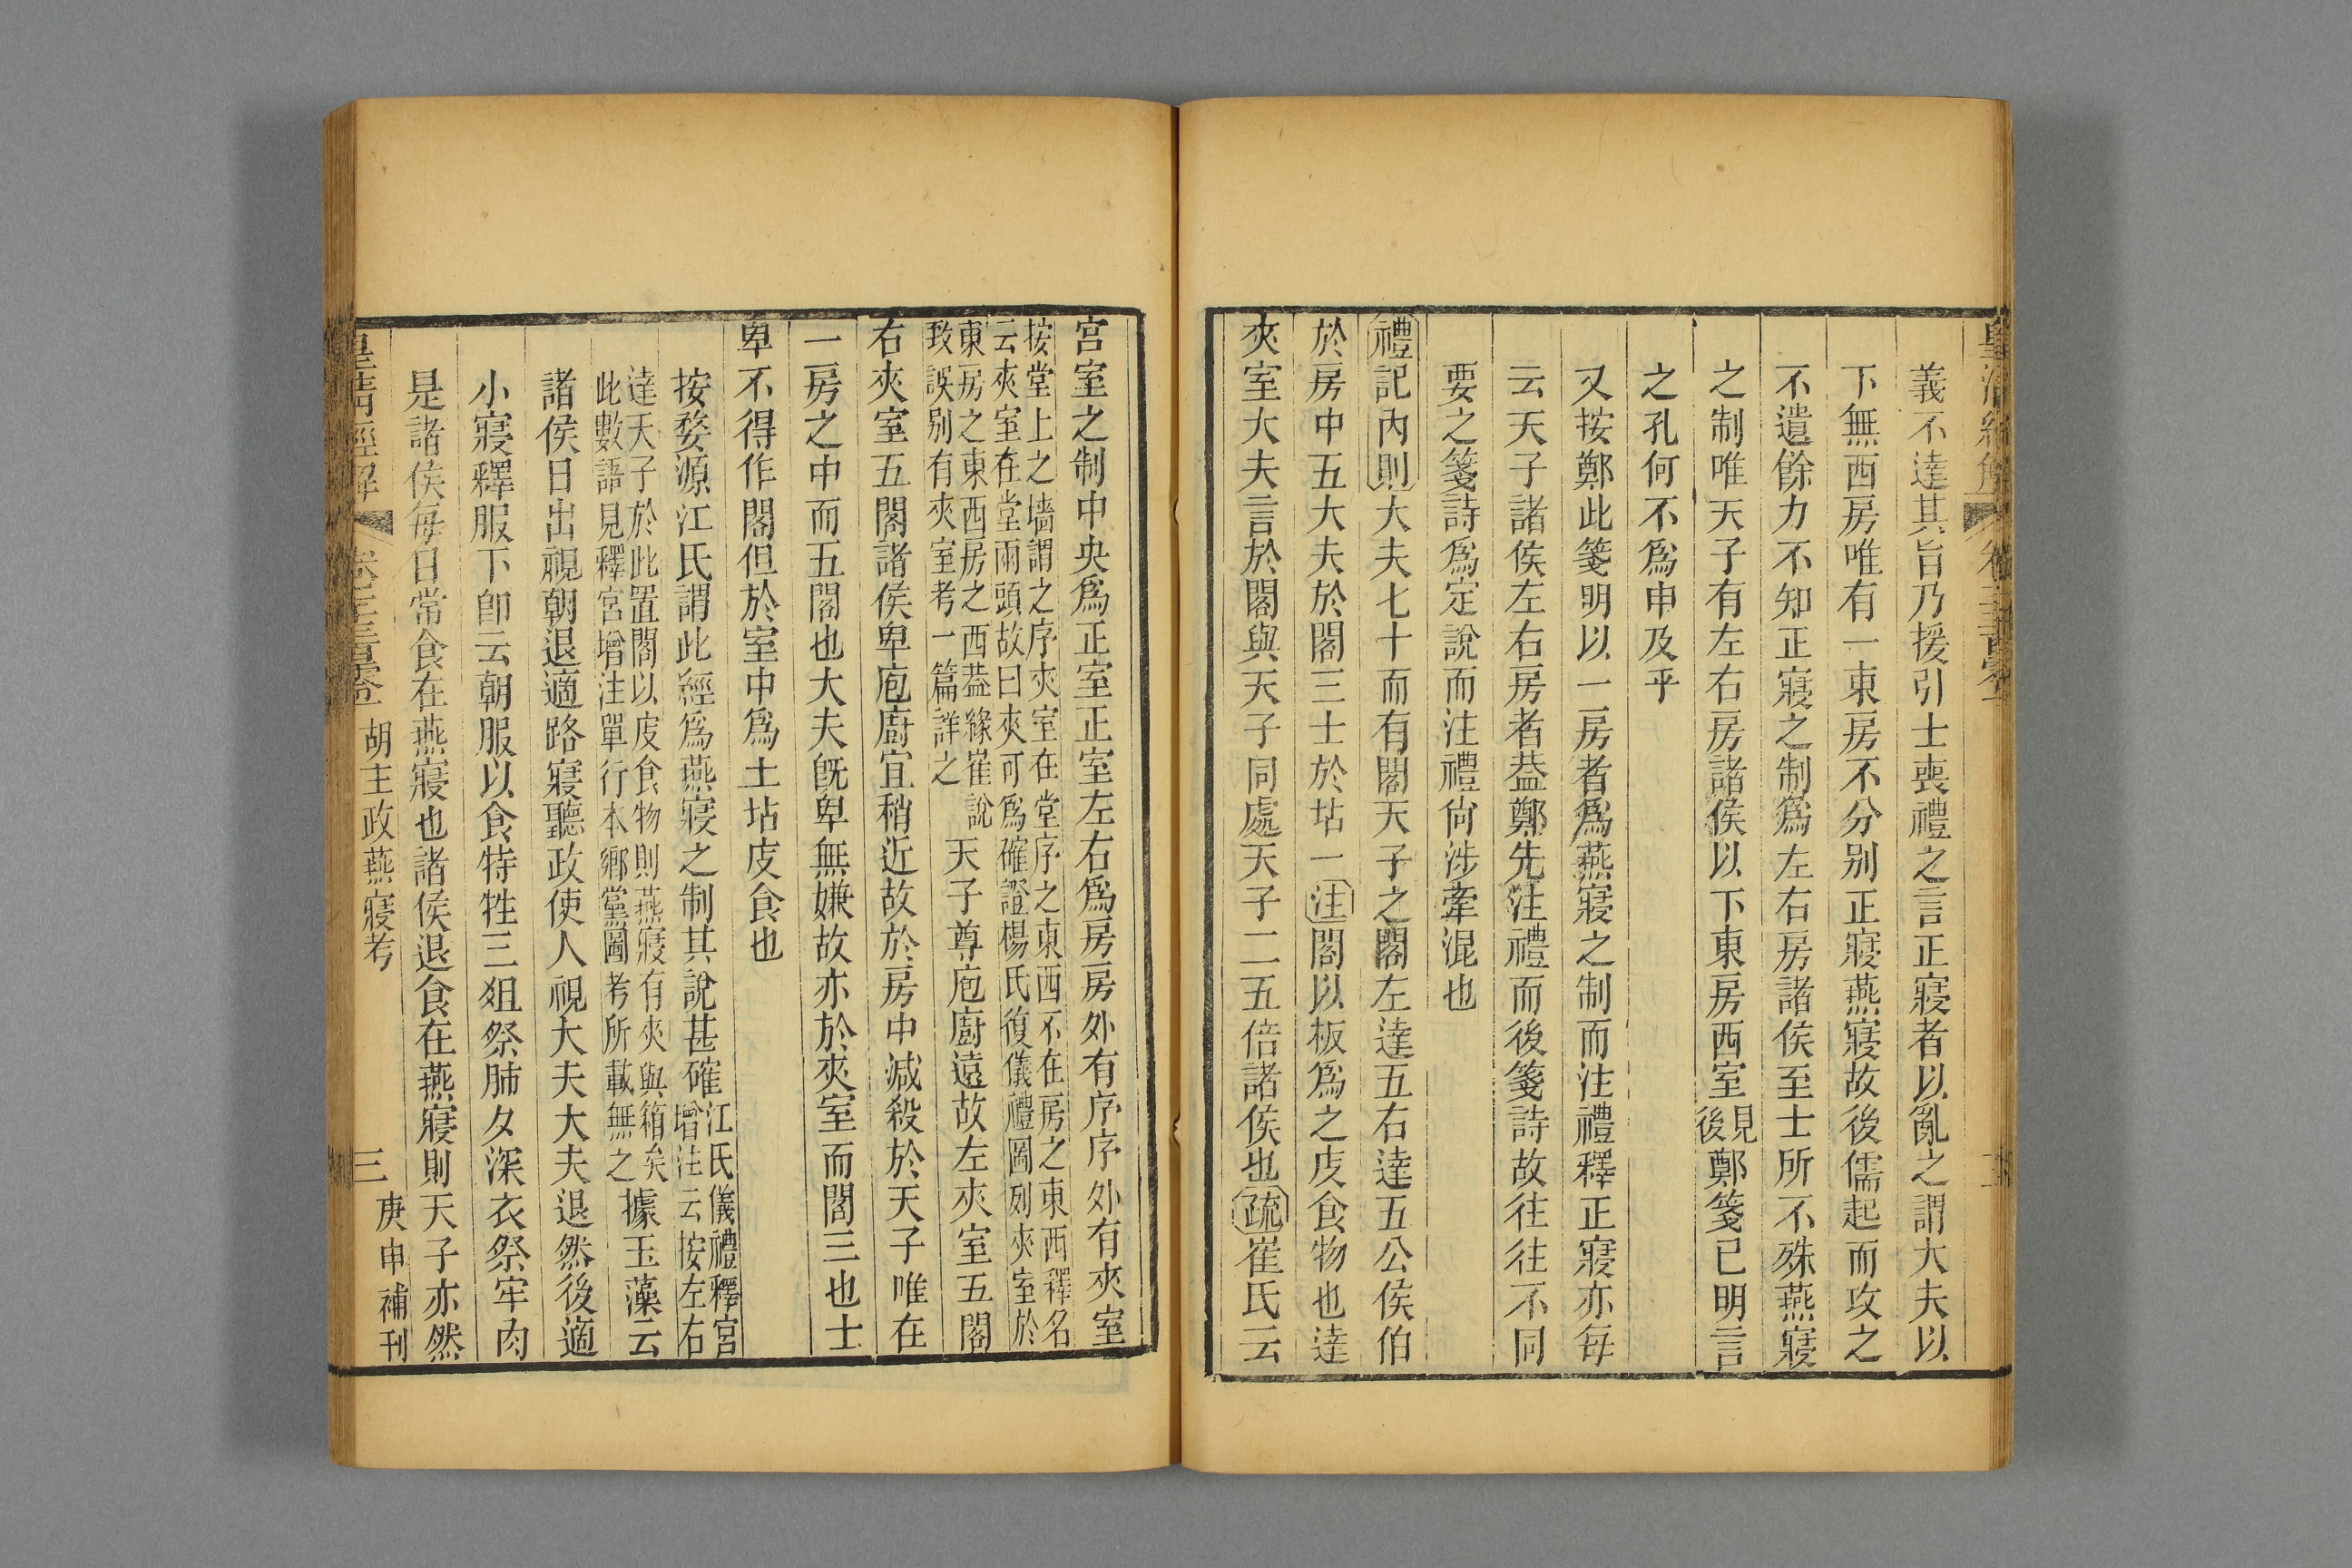 義不達其旨乃援引士喪禮之言正寢者以亂之謂大夫以
下無西房唯有一東房不分别正寢燕寢故後儒起而攻之
不遺餘力不知正寢之制爲左右房諸侯至士所不殊燕寢
之制唯天子有左右房諸侯以下東房西室見後鄭箋已明言
之孔何不爲申及乎
又按鄭此箋明以一房者爲燕寢之制而注禮釋正寢亦每
云天子諸侯左右房者葢鄭先注禮而後箋詩故往往不同
要之箋詩爲定說而注禮尙涉牽混也
禮記內則大夫七十而有閣天子之閣左達五右達五公侯伯
於房中五大夫於閣三士於坫一注閣以板爲之庋食物也達
夾室大夫言於閣與天子同處天子二五倍諸侯也疏崔氏云
宮室之制中央爲正室正室左右爲房房外有序序外有夾室
按堂上之墻謂之序夾室在堂序之東西不在房之東西釋名
云夾室在堂兩頭故曰夾可爲確證楊氏復儀禮圖列夾室於
東房之東西房之西葢緣崔說
致誤别有夾室考一篇詳之
天子尊庖廚遠故左夾室五閣
右夾室五閣諸侯卑庖廚宜稍近故於房中減殺於天子唯在
一房之中而五閣也大夫旣卑無嫌故亦於夾室而閣三也士
卑不得作閣但於室中爲土坫庋食也
按婺源江氏謂此經爲燕寢之制其說甚確
江氏儀禮釋宮
增注云按左右
達天子於此置閣以庋食物則燕寢有夾與箱矣
此數語見釋宮增注單行本鄉黨圖考所載無之
據玉藻云
諸侯日出視朝退適路寢聽政使人視大夫大夫退然後適
小寢釋服下卽云朝服以食特牲三俎祭肺夕深衣祭牢肉
是諸侯每日常食在燕寢也諸侯退食在燕寢則天子亦然
皇淸經解
胡主政燕寢考
三
庚申補刊